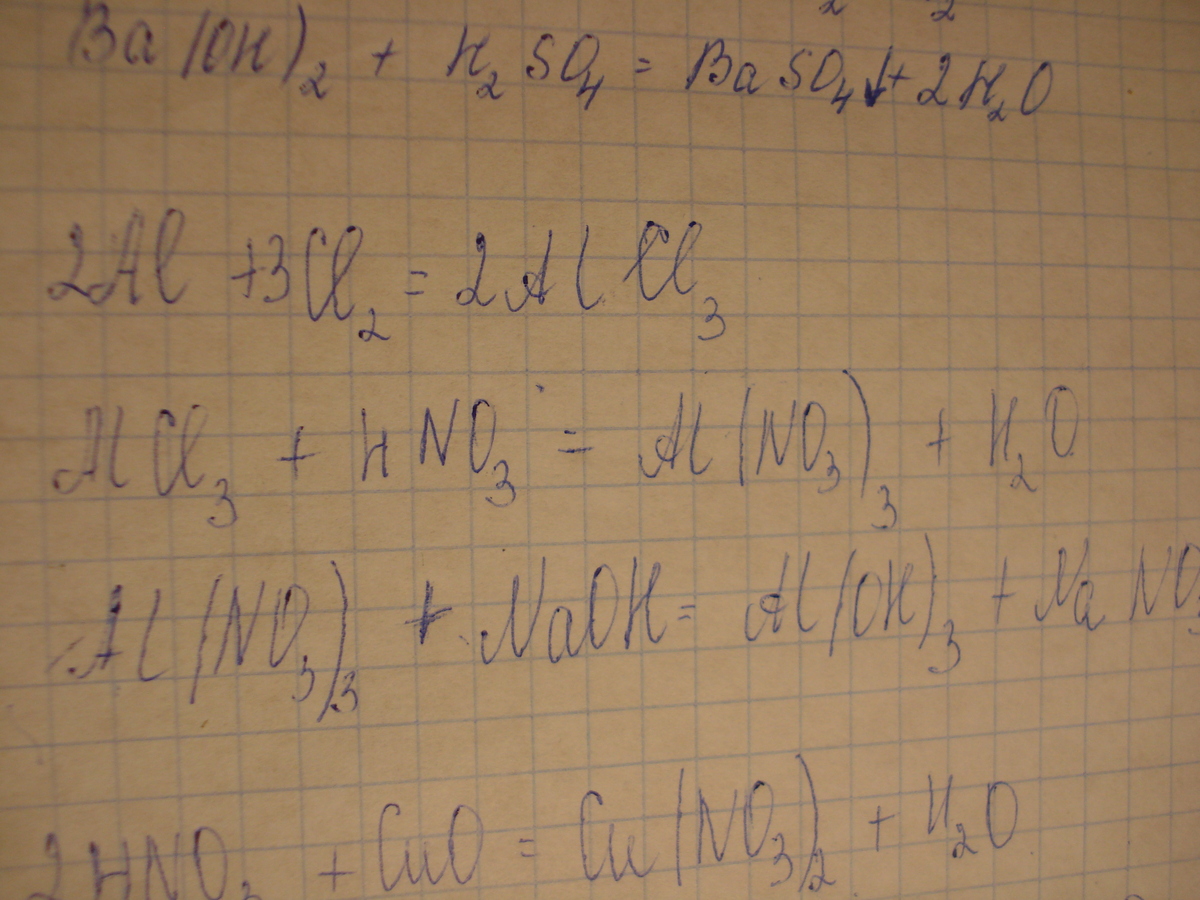 Ba(OH)₂ + H₂SO₄ = BaSO₄↓ + 2H₂O
2Al + 3Cl₂ = 2AlCl₃
AlCl₃ + HNO₃ = Al(NO₃)₃ + H₂O
Al(NO₃)₃ + NaOH = Al(OH)₃ + NaNO₃
2HNO₃ + CuO = Cu(NO₃)₂ + H₂O